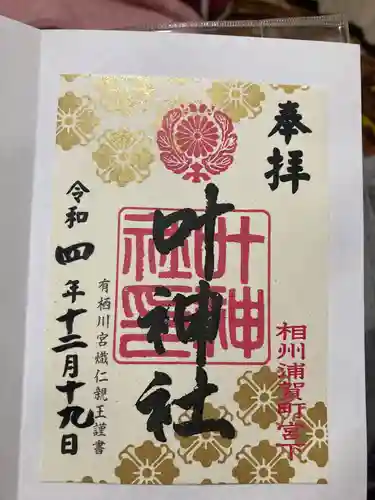 奉拝
相州浦賀町宮下
叶神社
叶神社印
有栖川宮熾仁親王謹書
令和四年十二月十九日